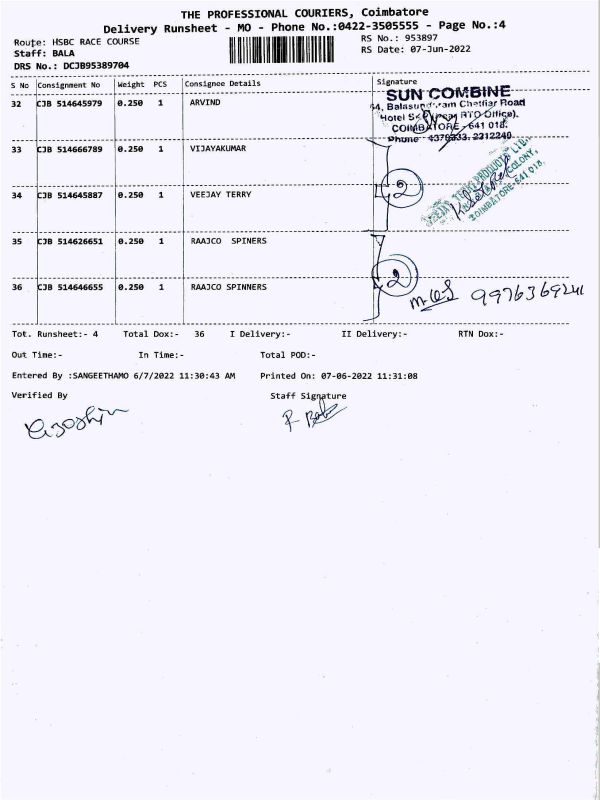 THE PROFESSIONAL COURIERS, Coimbatore
Delivery Runsheet - MO - Phone No.:0422-3505555 - Page No.:4
Route: HSBC RACE COURSE
RS No.: 953897
Staff: BALA
RS Date: 07-Jun-2022
DRS No.: DCJB95389704
S No Consignment No Weight PCS Consignee Details Signature
32 CJB 514645979 0.250 1 ARVIND
SUN COMBINE
44, Balasundaram Chettiar Road
(near RTO Office),
COIMBATORE - 641 018.
Phone 4378333, 2312240
33 CJB 514666789 0.250 1 VIJAYAKUMAR
34 CJB 514645887 0.250 1 VEEJAY TERRY
2
COLONY,
COIMBATORE-641 018.
35 CJB 514626651 0.250 1 RAAJCO SPINERS
36 CJB 514646655 0.250 1 RAAJCO SPINNERS
2
Tot. Runsheet:- 4 Total Dox:- 36 I Delivery:- II Delivery:- RTN Dox:-
Out Time:- In Time:- Total POD:-
Entered By :SANGEETHAMO 6/7/2022 11:30:43 AM Printed On: 07-06-2022 11:31:08
Verified By Staff Signature